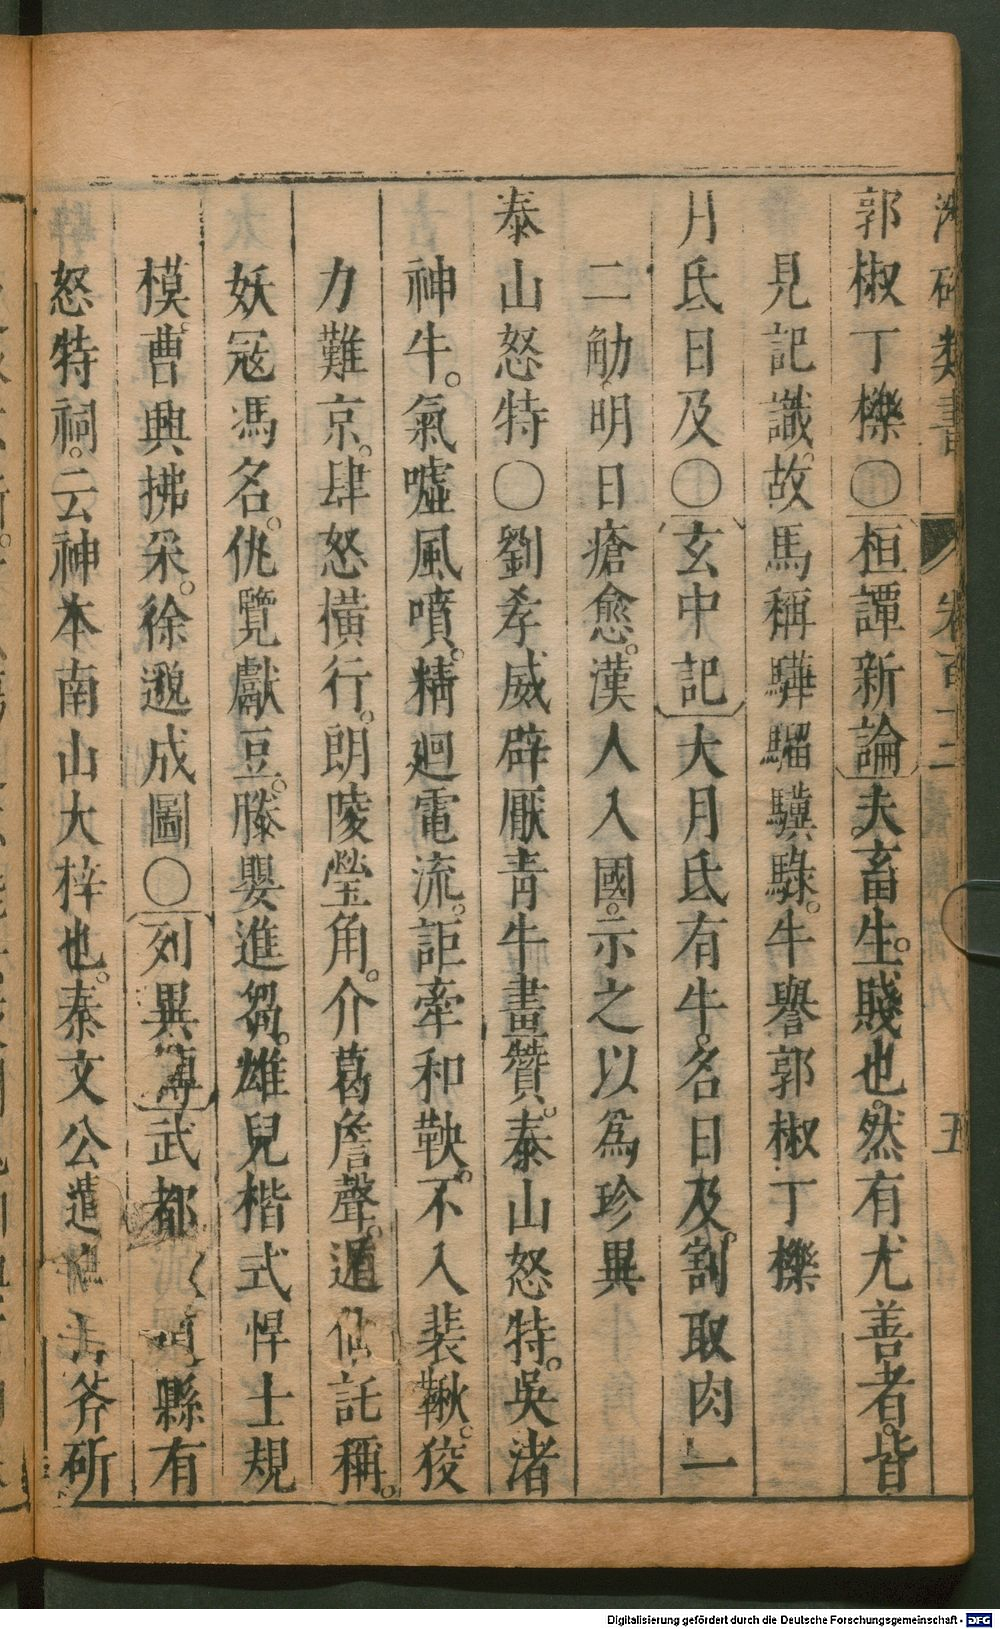 類書 卷百十二 五
郭椒丁櫟〇桓譚新論夫畜生。賤也。然有尤善者。皆
見記識。故馬稱驊騮驥騄。牛譽郭椒丁櫟
月氏日及〇玄中記大月氏有牛。名曰日及。割取肉一
二觔。明日瘡愈。漢人入國。示之以爲珍異
泰山怒特〇劉孝威辟厭青牛畫贊。泰山怒特。吳渚
神牛。氣噓風噴。精迴電流。詎牽和鞅。不入裴鞦。狡
力難京。肆怒橫行。朗陵瑩角。介葛詹聲。遁仙託稱。
妖寇馮名。佻覽獻豆。滕嬰進芻。雄兒楷式悍士規
模。曹興拂采。徐邈成圖〇列異傳武都 縣有
怒特祠。云神本南山大梓也。秦文公遣 斧斫
Digitalisierung gefördert durch die Deutsche Forschungsgemeinschaft - DFG